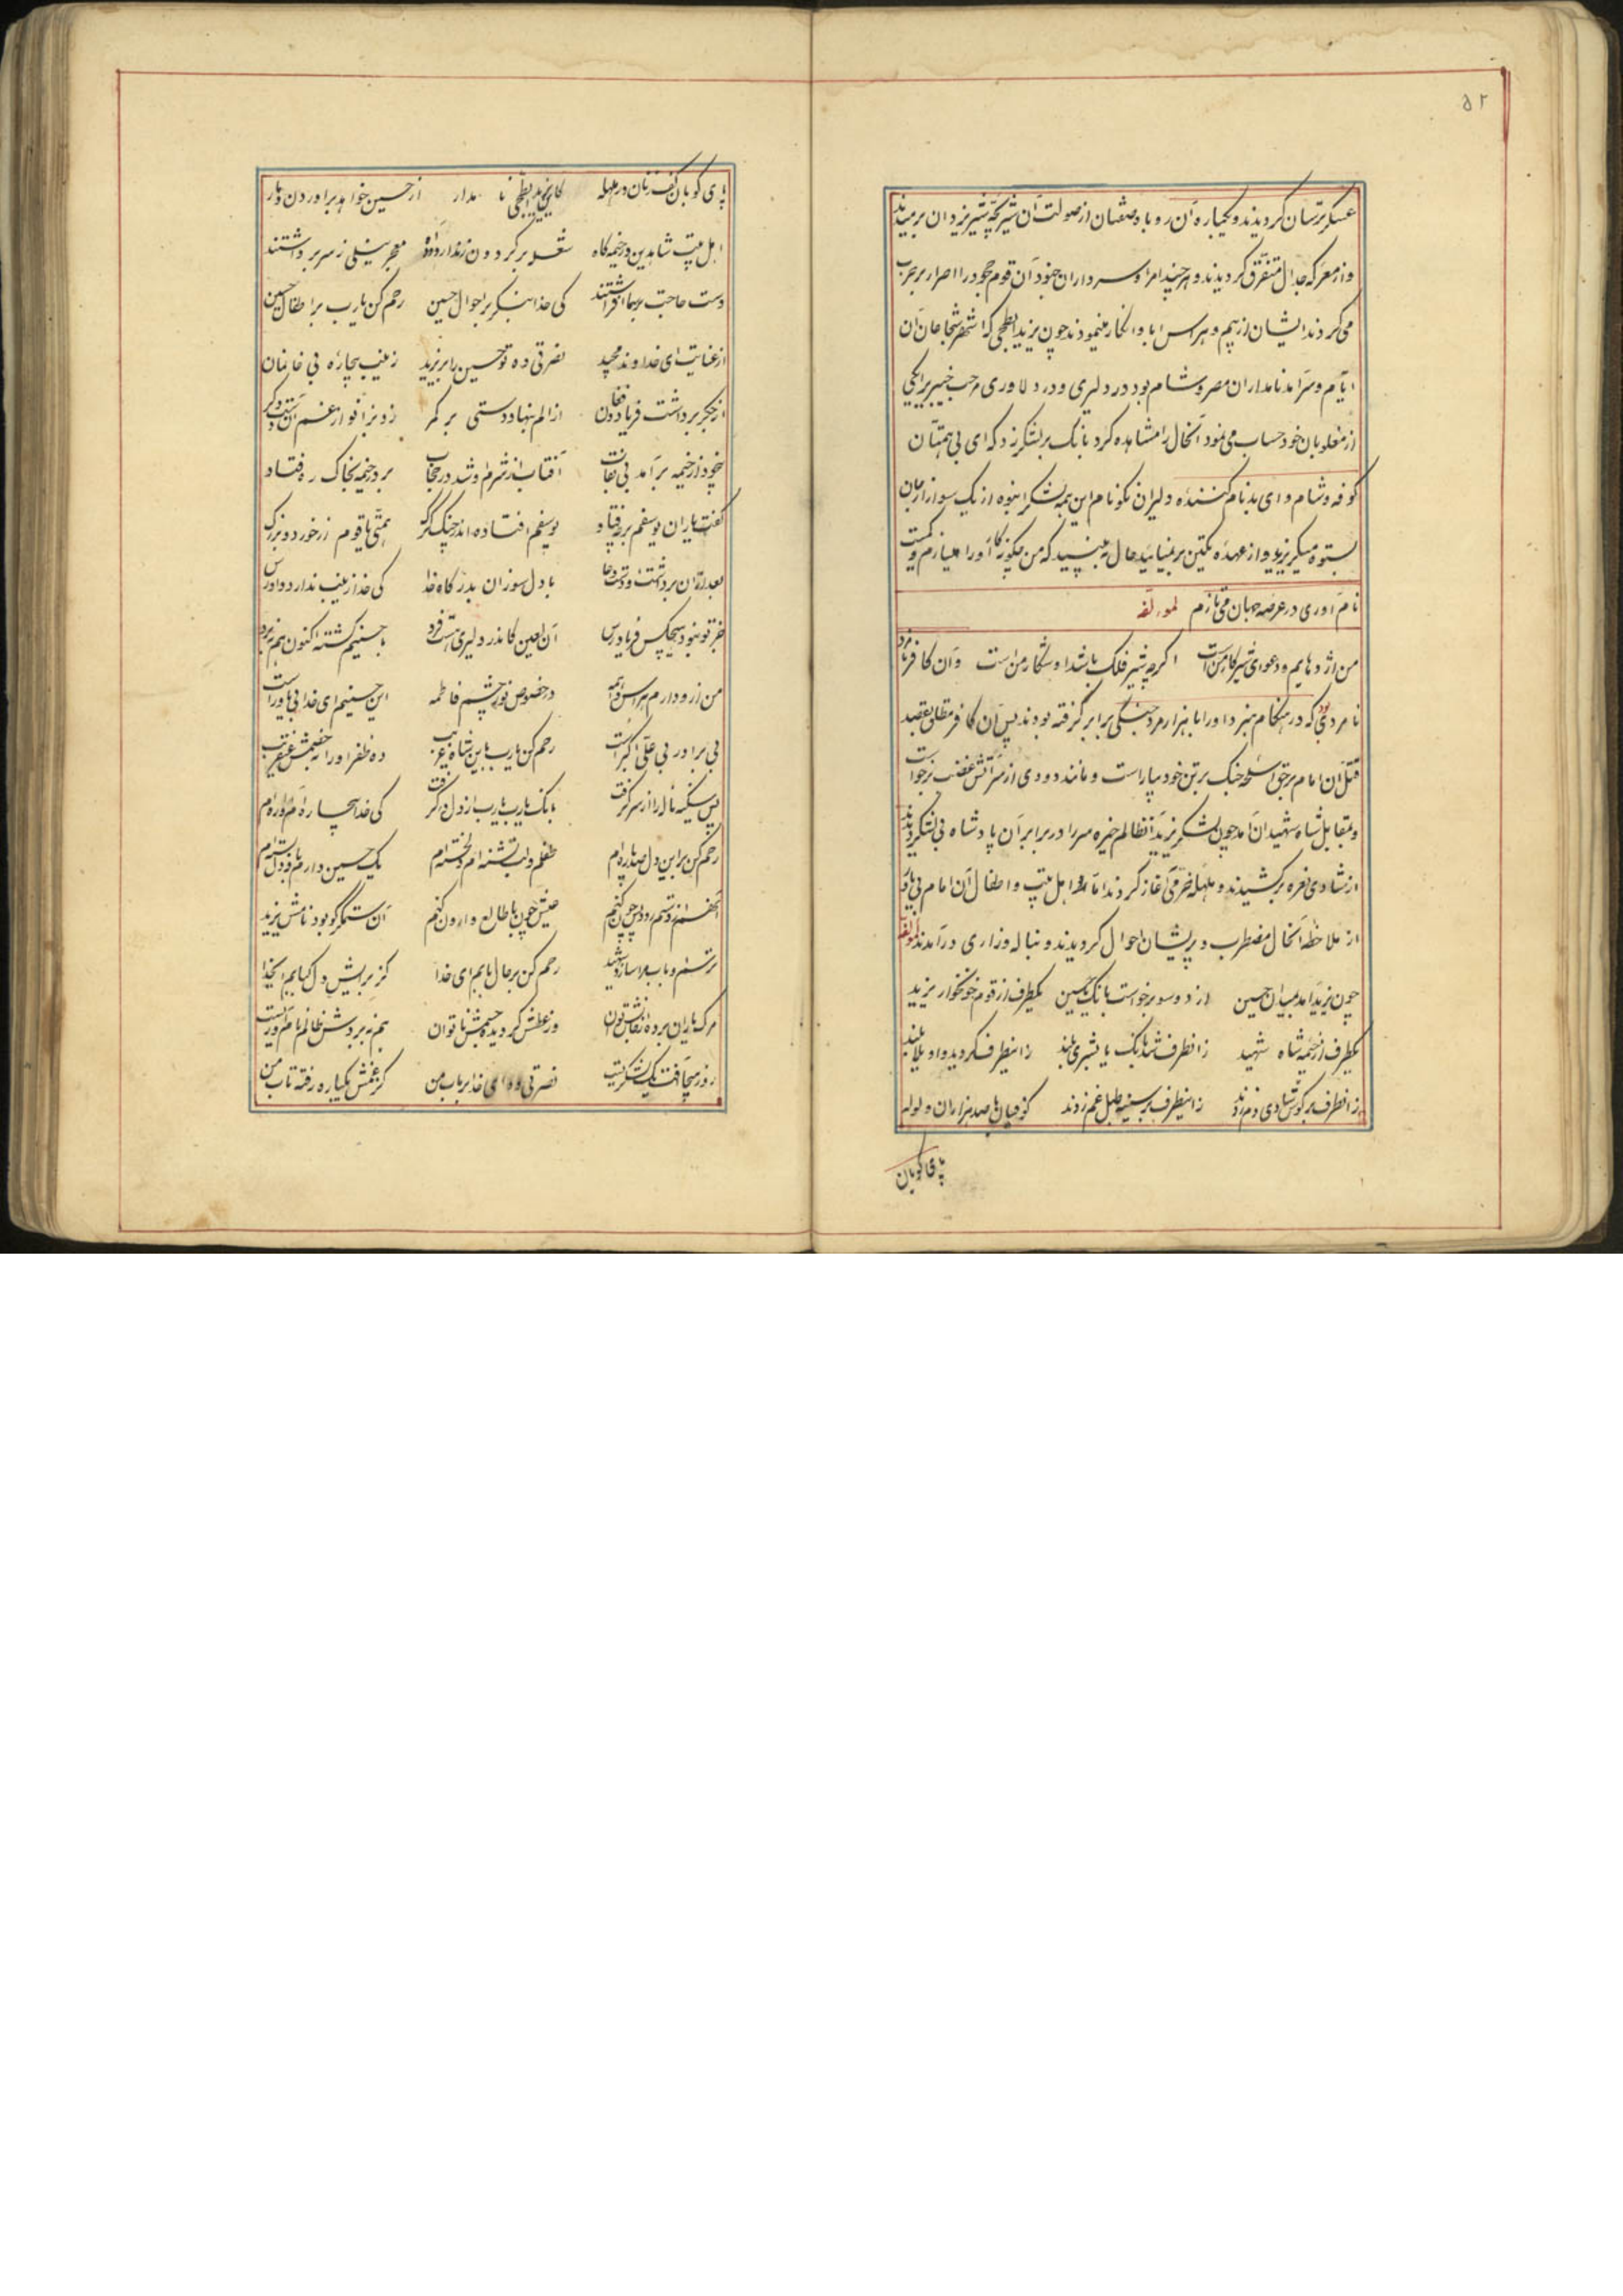 ۵۲
عسکر ترسان گردیدند و یکباره آن روباه صفتان از صولت آن شیر بچه شیر یزدان برمیدند
و از معرکه جدال متفرق گردیدند و هر چند امرا و سرداران خود آن قوم جحود را اصرار بر حرب
می کردند ایشان از بیم و هراس ابا و انکار مینمودند چون یزید ابطحی که اشهر شجاعان آن
ایام و سرآمد نامداران مصر و شام بود در دلیری و در دلاوری مرحب خیبر را یکی
از مغلوبان خود حساب می نمود آنحال را مشاهده کرد بانک بر لشکر زد که ای بی همتان
کوفه و شام و ای بدنام کننده دلیران نکونام این همه لشکر انبوه از یک سوار از جان
بستوه میگریزید و از عهده یکتن بر نمیائید حال به بینید که من چگونه کار او را میسازم و
نام آوری در عرصه جهان می نازم لمؤلفه
من اژدهایم و دعوای شیر کار من است اگر چه شیر فلک باشد او شکار من است و آن کافر
نامردی بود که در هنگام نبرد او را با هزار مرد جنگی برابر گرفته بودند پس آن کافر مطلق بقصد
قتل آن امام برحق اسلحه جنک بر تن خود بیاراست و مانند دودی از سر آتش غضب برخواست
و بمقابل شاه شهیدان آمد چون لشکر یزید آنظالم خیره سر را در برابر آن پادشاه بی لشکر دیدند
از شادی نعره برکشیدند و هلهله خرمی آغاز کردند اما اهل بیت و اطفال آن امام بی یار
از ملاحظه آنحال مضطرب و پریشان احوال گردیدند و بناله و زاری درآمدند لمؤلفه
چون یزید آمد بمیدان حسین از دو سو برخواست بانک یا حسین یکطرف از قوم خونخوار یزید
یکطرف از خیمه شاه شهید زانطرف شد بانک یا بشری بلند زاینطرف گردید واویلا بلند
زانطرف بر کوس شادی دم زدند زاینطرف بر سینه طبل غم زدند کوفیان با صد هزاران ولوله
پای کوبان
پای کوبان کف زنان در هلهله کاین یزید ابطحی نامدار از حسین خواهد برآوردن دمار
اهل بیت شاه دین در خیمه گاه شعله بر گردون زدند از دود آه معجر نیلی ز سر برداشتند
دست حاجت بر سما افراشتند کی خدا بنگر بر احوال حسین رحم کن یا رب بر اطفال حسین
از عنایت ای خداوند مجید نصرتی ده تو حسین را بر یزید زینب بیچاره بی خانمان
از جگر برداشت فریاد و فغان از الم بنهاد دستی بر کمر زد بزانو از غم آن دست دگر
چون ز خیمه برآمد بی نقاب آفتاب از شرم او شد در حجاب بر در خیمه بخاک ره فتاد
گفت یاران یوسفم بر ره فتاد یوسفم افتاده اند چنک گرگ همتی یا قوم از خورد و بزرگ
بعد از آن برداشت دست دعا با دل سوزان بدرگاه خدا کی خدا زینب ندارد دادرس
جز تو نبود هیچکس فریادرس آن لعین کاندر دلیری هست فرد با حسینم گشته اکنون هم نبرد
من از او دارم هراس و واهمه در خصوص نور چشم فاطمه این حسینم ای خدا بی یاور است
بی برادر بی علی اکبر است رحم کن یا رب باین شاه غریب ده ظفر او را به خصمش عنقریب
پس سکینه ناله را از سر گرفت بانک یا رب یا رب از دل درگرفت کی خدا بیچاره ام آواره ام
رحم کن بر این دل صد پاره ام طفلم و لب تشنه ام دلخسته ام یک حسین دارم
چون کنم با طالع وارون کنم آن ستمگر کو بود نامش یزید
رحم کن بر حال بابم ای خدا
مرگ یاران برده از تن تاب و توان وز عطش گردیده جسمش ناتوان هم نبردش ظالم نام آور است
نصرتی ده ای خدا بر باب من کز غمش یکباره رفته تاب من